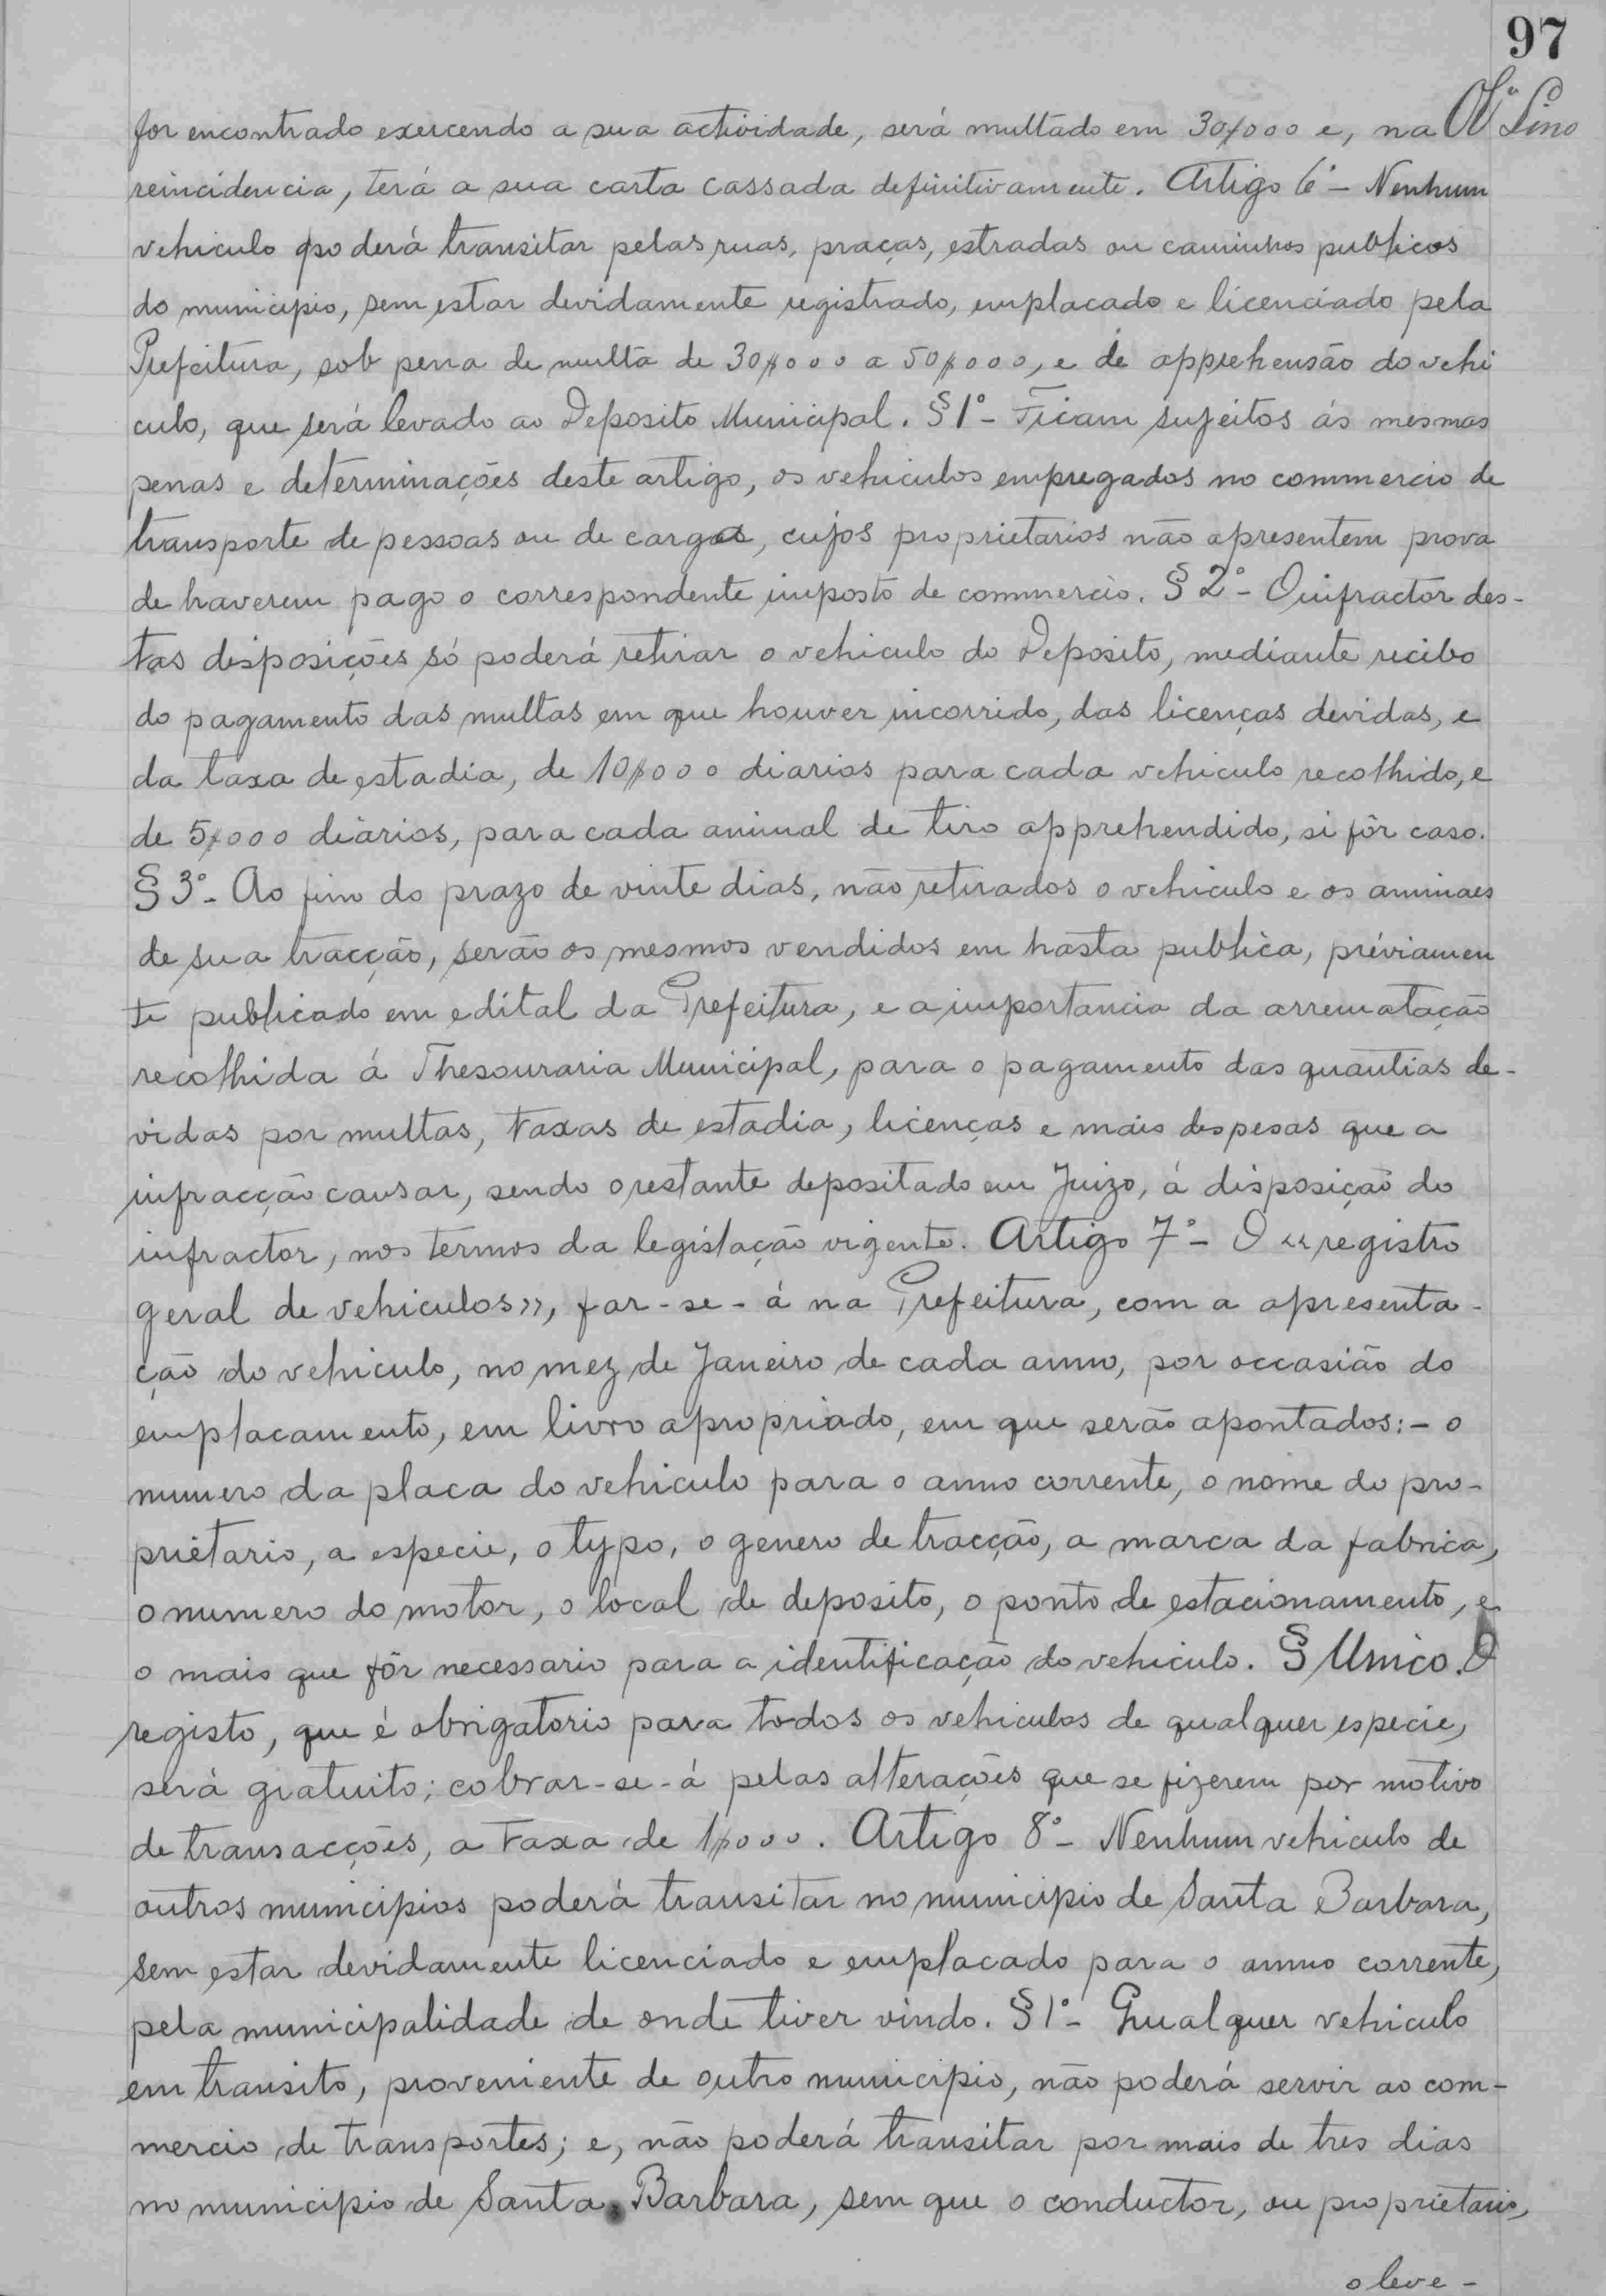 97
for encontrado exercendo a sua actividade, será multado em 30$000 e, na
reincidencia, terá a sua carta cassada definitivamente. Artigo 6º - Nenhum
vehiculo poderá transitar pelas ruas, praças, estradas ou caminhos publicos
do municipio, sem estar devidamente registrado, emplacado e licenciado pela
Prefeitura, sob pena de multa de 30$000 a 50$000, e de apprehensão do vehi
culo, que será levado ao Deposito Municipal. § 1º - Ficam sujeitos ás mesmas
penas e determinações deste artigo, os vehiculos empregados no commercio de
transporte de pessoas ou de cargas, cujos proprietarios não apresentem prova
de haverem pago o correspondente imposto de commercio. § 2º - O infractor des-
tas disposições só poderá retirar o vehiculo do Deposito, mediante recibo
do pagamento das multas em que houver incorrido, das licenças devidas, e
da taxa de estadia, de 10$000 diarios para cada vehiculo recolhido, e
de 5$000 diàrios, para cada animal de tiro apprehendido, si fôr caso.
§ 3º - Ao fim do prazo de vinte dias, não retirados o vehiculo e os animaes
de sua tracção, serão os mesmos vendidos em hasta publica, préviamen
te publicado em edital da Prefeitura, e a importancia da arrematação
recolhida á Thesouraria Municipal, para o pagamento das quantias de-
vidas por multas, taxas de estadia, licenças e mais despesas que a
infracção causar, sendo o restante depositado em Juizo, á disposição do
infractor, nos termos da legislação vigente. Artigo 7º - O «registro
geral de vehiculos», far-se-á na Prefeitura, com a apresenta-
ção do vehiculo, no mez de Janeiro de cada anno, por occasião do
emplacamento, em livro apropriado, em que serão apontados: - o
numero da placa do vehiculo para o anno corrente, o nome do pro-
prietario, a especie, o typo, o genero de tracção, a marca da fabrica,
o numero do motor, o local de deposito, o ponto de estacionamento, e
o mais que fôr necessario para a identificação do vehiculo. § Unico. O
registo, que é obrigatorio para todos os vehiculos de qualquer especie,
será gratuito; cobrar-se-á pelas alterações que se fizerem por motivo
de transacções, a taxa de 1$000. Artigo 8º - Nenhum vehiculo de
outros municipios poderá transitar no municipio de Santa Barbara,
sem estar devidamente licenciado e emplacado para o anno corrente,
pela municipalidade de onde tiver vindo. § 1º - Qualquer vehiculo
em transito, proveniente de outro municipio, não poderá servir ao com-
mercio de transportes; e, não poderá transitar por mais de tres dias
no municipio de Santa Barbara, sem que o conductor, ou proprietario,
o leve -